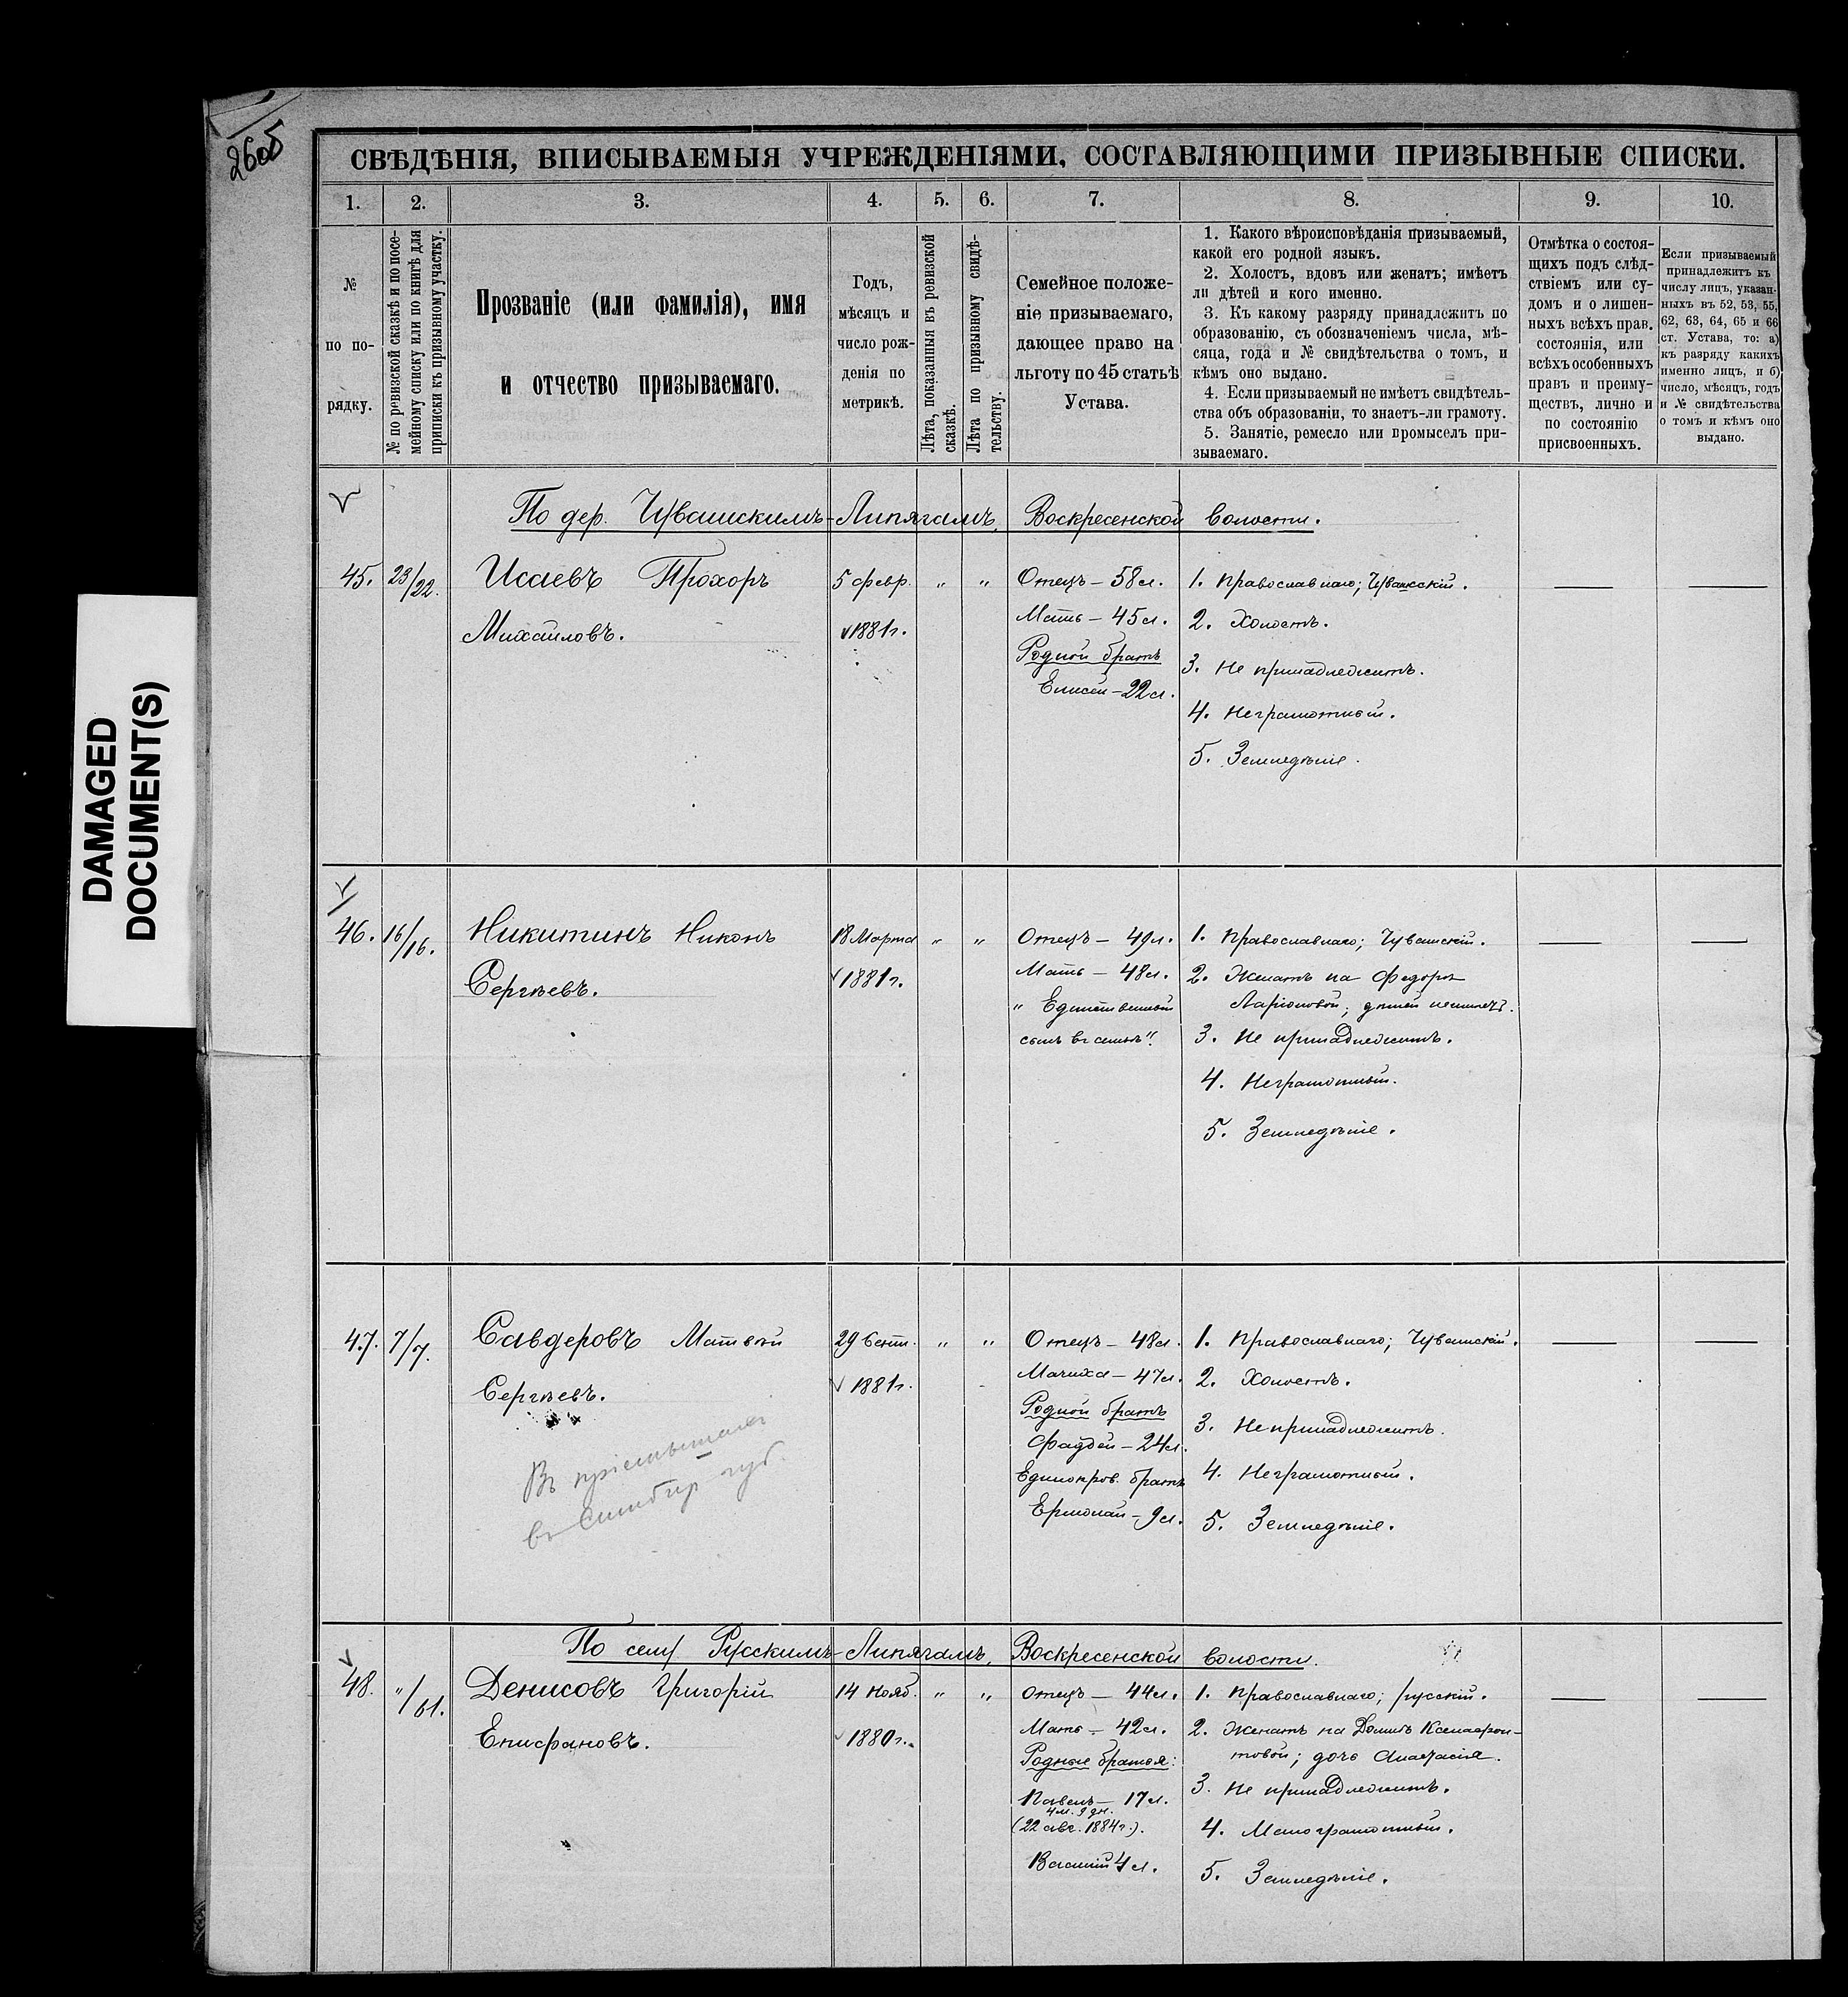 260б
DAMAGED
DOCUMENT(S)
СВѢДѢНІЯ, ВПИСЫВАЕМЫЯ УЧРЕЖДЕНІЯМИ, СОСТАВЛЯЮЩИМИ ПРИЗЫВНЫЕ СПИСКИ.
1. 2. 3. 4. 5. 6. 7. 8. 9. 10.
№
по по-
рядку.
№ по ревизской сказкѣ и по посе-
мейному списку или по книгѣ для
приписки къ призывному участку.
Прозваніе (или фамилія), имя
и отчество призываемаго.
Годъ,
мѣсяцъ и
число рож-
денія по
метрикѣ.
Лѣта, показанныя въ ревизской
сказкѣ.
Лѣта по призывному свидѣ-
тельству.
Семейное положе-
ніе призываемаго,
дающее право на
льготу по 45 статьѣ
Устава.
1. Какого вѣроисповѣданія призываемый,
какой его родной языкъ.
2. Холостъ, вдовъ или женатъ; имѣетъ
ли дѣтей и кого именно.
3. Къ какому разряду принадлежитъ по
образованію, съ обозначеніемъ числа, мѣ-
сяца, года и № свидѣтельства о томъ, и
кѣмъ оно выдано.
4. Если призываемый не имѣетъ свидѣтель-
ства объ образованіи, то знаетъ-ли грамоту.
5. Занятіе, ремесло или промыселъ при-
зываемаго.
Отмѣтка о состоя-
щихъ подъ слѣд-
ствіемъ или су-
домъ и о лишен-
ныхъ всѣхъ прав.
состоянія, или
всѣхъ особенныхъ
правъ и преиму-
ществъ, лично и
по состоянію
присвоенныхъ.
Если призываемый
принадлежитъ къ
числу лицъ, указан-
ныхъ въ 52, 53, 55,
62, 63, 64, 65 и 66
ст. Устава, то: а)
къ разряду какихъ
именно лицъ, и б)
число, мѣсяцъ, годъ
и № свидѣтельства
о томъ и кѣмъ оно
выдано.
По дер. Чувашскимъ-Липягамъ, Воскресенской волости.
45. 23/22. Исаевъ Прохоръ
Михайловъ.
5 февр.
1881г.
" "
Отецъ – 58л.
Мать – 45л.
Родной братъ
Елисей – 22л.
1. Православнаго; Чувашскій.
2. Холостъ.
3. Не принадлежитъ.
4. Неграмотный.
5. Земледѣліе.
46. 16/16. Никитинъ Никонъ
Сергѣевъ.
18 Марта
1881г.
" "
Отецъ – 49л.
Мать – 48л.
"Единственный
сынъ въ семьѣ".
1. Православнаго; Чувашскій.
2. Женатъ на Федорѣ
Ларіоновой; дѣтей неимѣетъ.
3. Не принадлежитъ.
4. Неграмотный.
5. Земледѣліе.
47. 7/7. Савдеровъ Матвѣй
Сергѣевъ.
Въ
въ Симбир губ.
29 Сент.
1881г.
" "
Отецъ – 48л.
Мачиха – 47л.
Родной братъ
Фаддей – 24л.
Единокров. братъ
Ермолай – 9л.
1. Православнаго; Чувашскій.
2. Холостъ.
3. Не принадлежитъ.
4. Неграмотный.
5. Земледѣліе.
По селу Русскимъ-Липягамъ, Воскресенской волости.
48. "/61. Денисовъ Григорій
Епифановъ.
14 Нояб.
1880г.
" "
Отецъ – 44л.
Мать – 42л.
Родные братья:
Павелъ – 17л.
4м. 9 дн.
(22 авг. 1884г.).
Василій 4л.
1. Православнаго; русскій.
2. Женатъ на Домнѣ Ксенофон-
товой; дочь Анастасія.
3. Не принадлежитъ.
4. Малограмотный.
5. Земледѣліе.